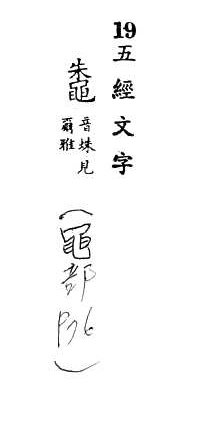 19五經文字
鼄
音株見
爾雅
(黽部
P76)